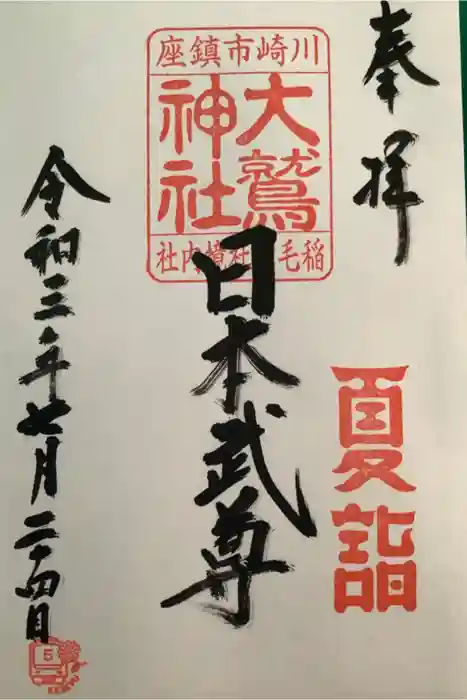 奉拝
夏詣
川崎市鎮座
大鷲
神社
稲毛神社境内社
日本武尊
令和三年七月二十四日
5